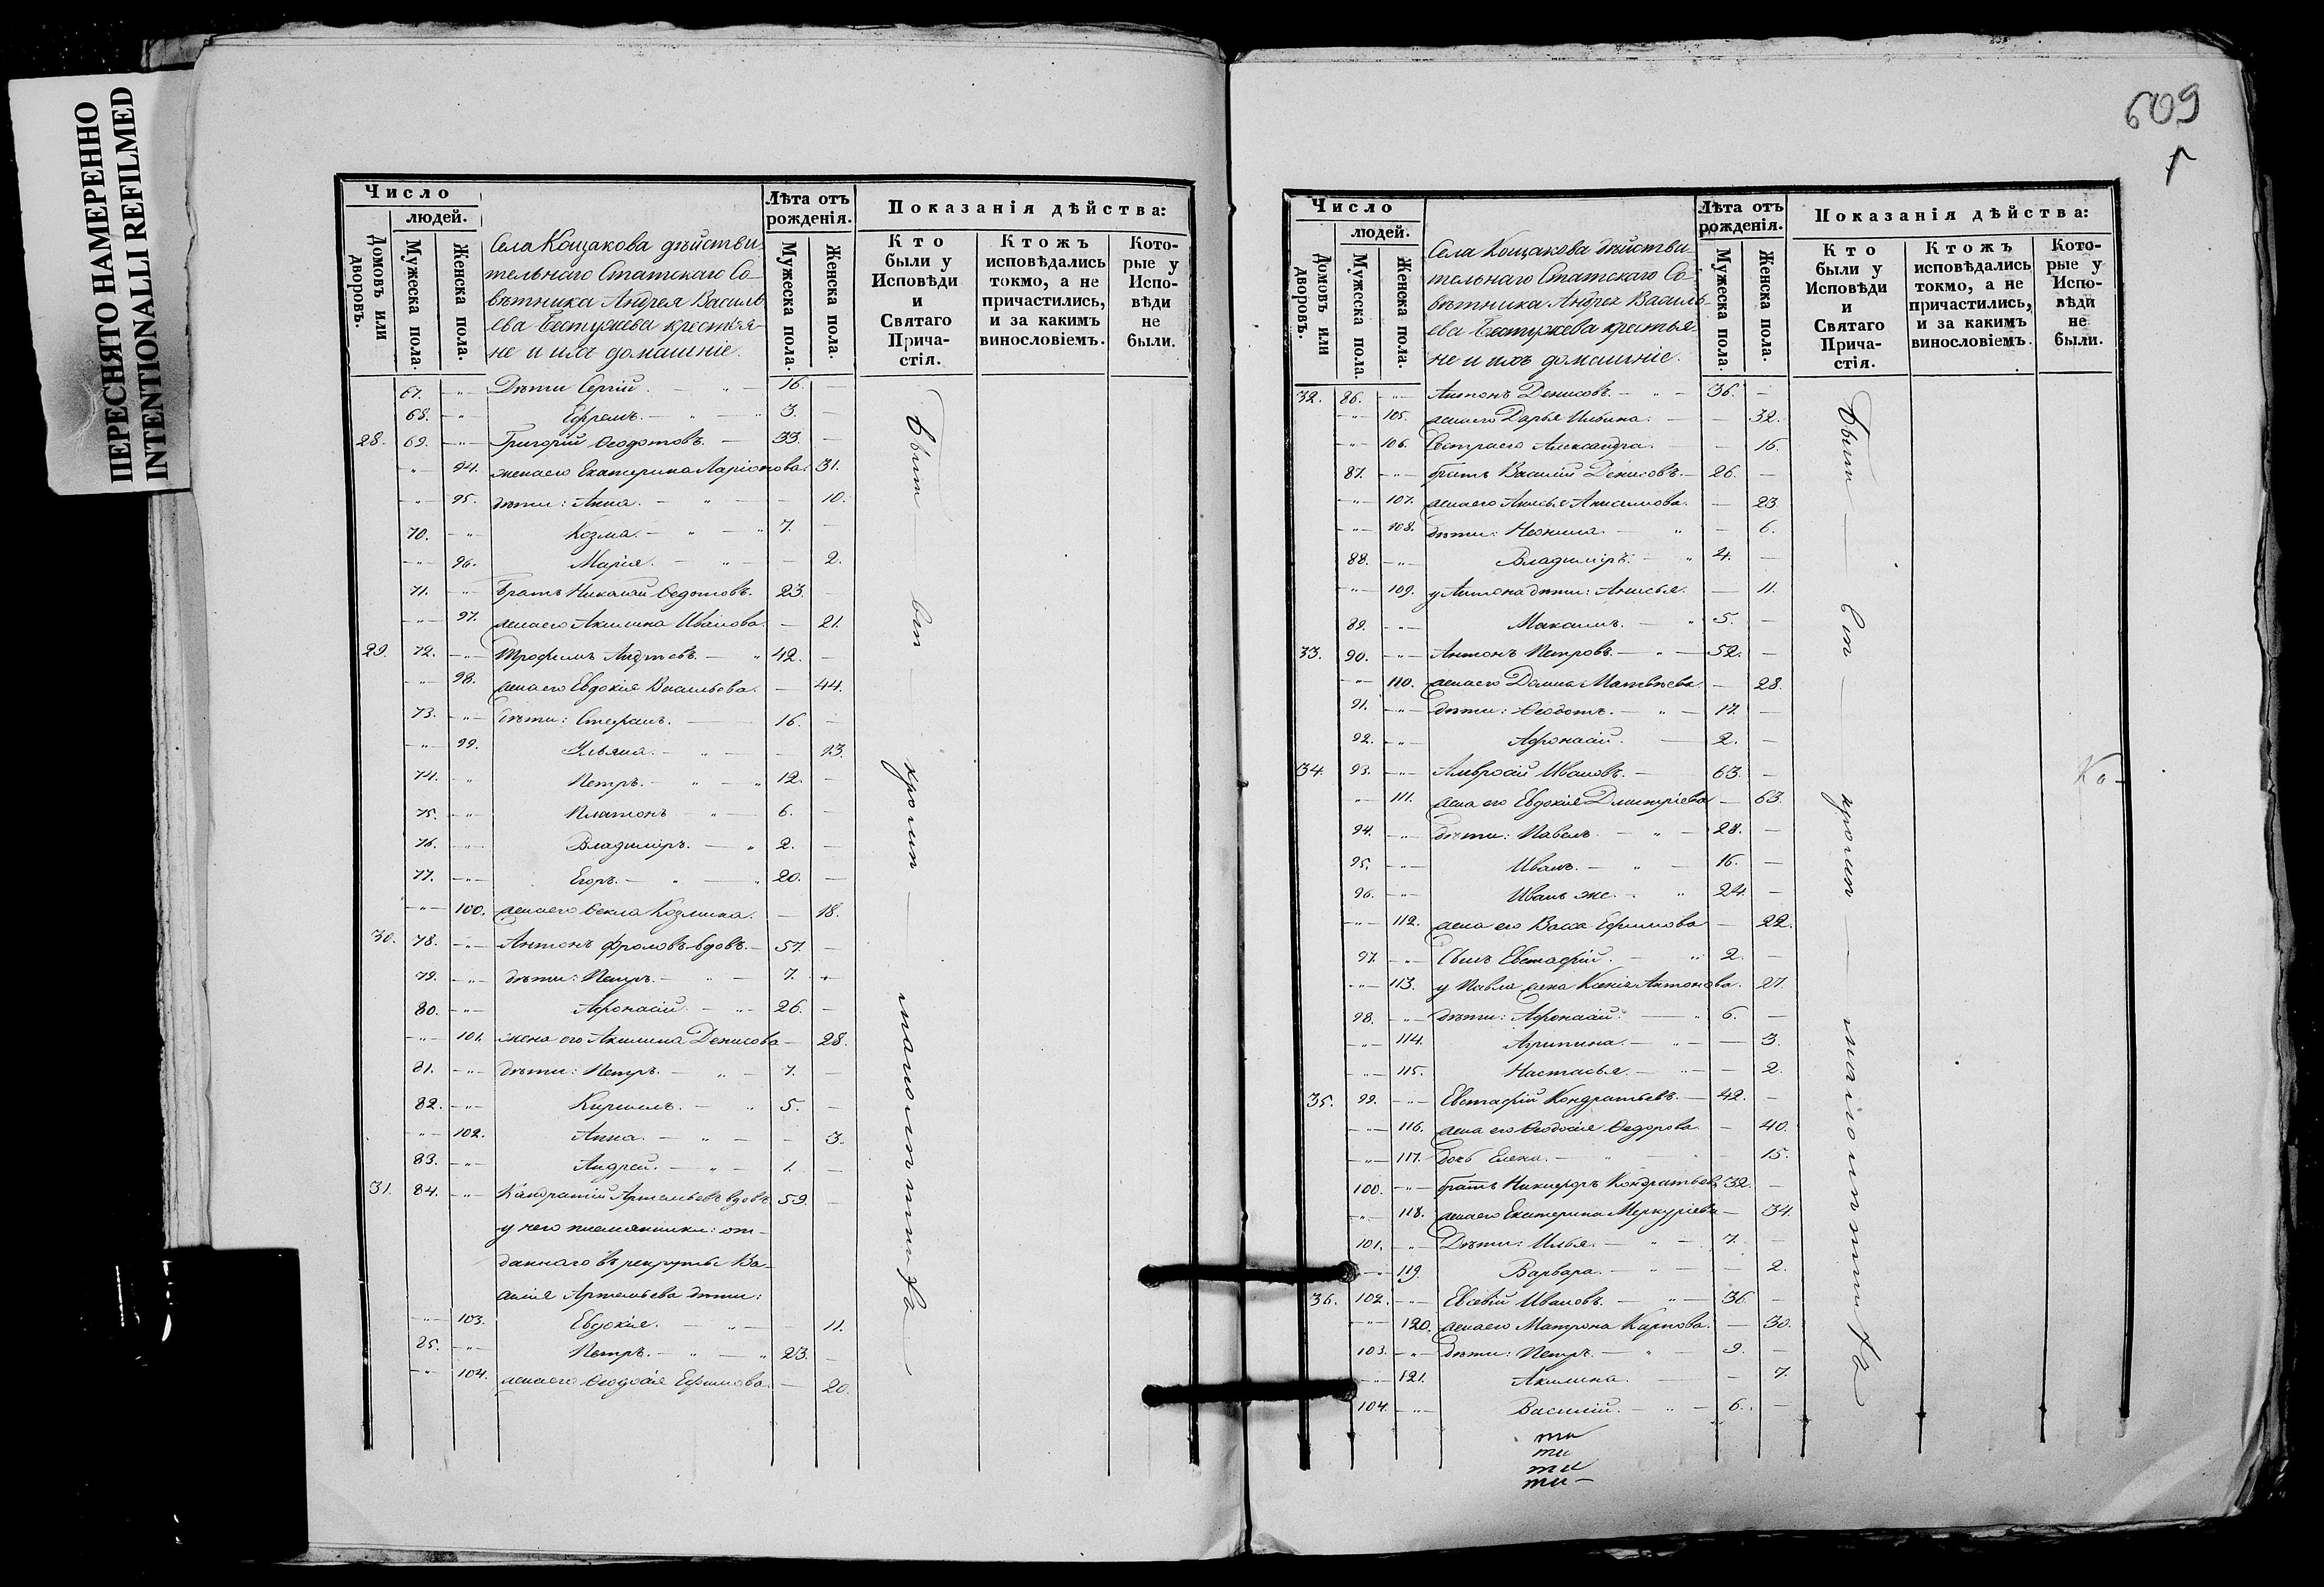 ПЕРЕСНЯТО НАМЕРЕННО
INTENTIONALLI REFILMED
Число
людей.
Домовъ или дворовъ.
Мужеска пола.
Женска пола.
Села Кощакова дѣйстви-
тельнаго Статскаго Со-
вѣтника Андрея Василь
ева Бестужева крестья-
не и ихъ домашніе.
Лѣта отъ рожденія.
Мужеска пола.
Женска пола.
Показанія дѣйства:
Кто были у Исповѣди и Святаго Прича-стія.
Ктожъ исповѣдались токмо, а не причастились, и за какимъ винословіемъ.
Кото-рые у Испо-вѣди не были.
67. Дѣти Сергій. 16.
68. Ефремъ. 3.
28. 69. Григорій Ѳеодотовъ. 33.
94. жена его Екатерина Ларіонова. 31.
95. дѣти: Анна. 10.
70. Козма. 7.
96. Марія. 2.
71. Братъ Николай Ѳедотовъ. 23.
97. жена его Акилина Иванова. 21.
29. 72. Трофимъ Андреевъ. 42.
98. жена его Евдокія Васильева. 44.
73. дѣти: Стефанъ. 16.
99. Ульяна. 13.
74. Петръ. 12.
75. Платонъ 6.
76. Владиміръ. 2.
77. Егоръ. 20.
100. жена его Ѳекла Козмина. 18.
30. 78. Антонъ Фроловъ вдовъ. 57.
79. дѣти: Петръ. 7.
80. Афонасій. 26.
101. жена его Акилина Денисова 28.
81. дѣти: Петръ. 7.
82. Кирилъ. 5.
102. Анна. 3.
83. Андрей. 1.
31. 84. Кандратій Артемьевъ вдовъ 59.
у него племянники: от-
даннаго въ рекруты Ва-
силія Артемьева дѣти:
103. Евдокія. 11.
85. Петръ. 23.
104. жена его Ѳеодосія Ефимова. 20.
609
Число
людей.
Домовъ или дворовъ.
Мужеска пола.
Женска пола.
Села Кощакова дѣйстви
тельнаго Статскаго Со-
вѣтника Андрея Василь-
ева Бестужева крестья-
не и ихъ домашніе.
Лѣта отъ рожденія.
Мужеска пола.
Женска пола.
Показанія дѣйства:
Кто были у Исповѣди и Святаго Прича-стія.
Ктожъ исповѣдались токмо, а не причастились, и за какимъ винословіемъ.
Кото-рые у Испо-вѣди не были.
32. 86. Антонъ Денисовъ. 36.
105. жена его Дарья Ильина. 32.
106. Сестра его Александра. 16.
87. братъ Василій Денисовъ. 26.
107. жена его Анисья Анисимова. 23.
108. дѣти: Неонила. 6.
88. Владиміръ. 4.
109. у Антона дѣти: Анисья. 11.
89. Максимъ. 5.
33. 90. Антонъ Петровъ. 52.
110. жена его Домна Матвѣева. 28.
91. дѣти: Ѳеодотъ. 17.
92. Афонасій. 2.
34. 93. Амвросій Ивановъ. 63.
111. жена его Евдокія Дмитріева 63.
94. дѣти: Павелъ. 28.
95. Иванъ. 16.
96. Иванъ же. 24.
112. жена его Васса Ефимова 22.
97. Сынъ Евстафій. 2.
113. у Павла жена Ксенія Антонова. 27.
98. дѣти: Афонасій. 6.
114. Агрипина. 3.
115. Настасья. 2.
35. 99. Евстафій Кондратьевъ. 42.
116. жена его Ѳеодосія Ѳедорова. 40.
117. дочь Елена. 15.
100. братъ Никифоръ Кондратьевъ 32.
118. жена его Екатерина Меркуріева 34.
101. Дѣти: Илья. 7.
119. Варвара. 2.
36. 102. Евсевій Ивановъ. 36.
120. жена его Матрона Карпова. 30.
103. дѣти: Петръ. 9.
121. Акилина. 7.
104. Василій. 6.